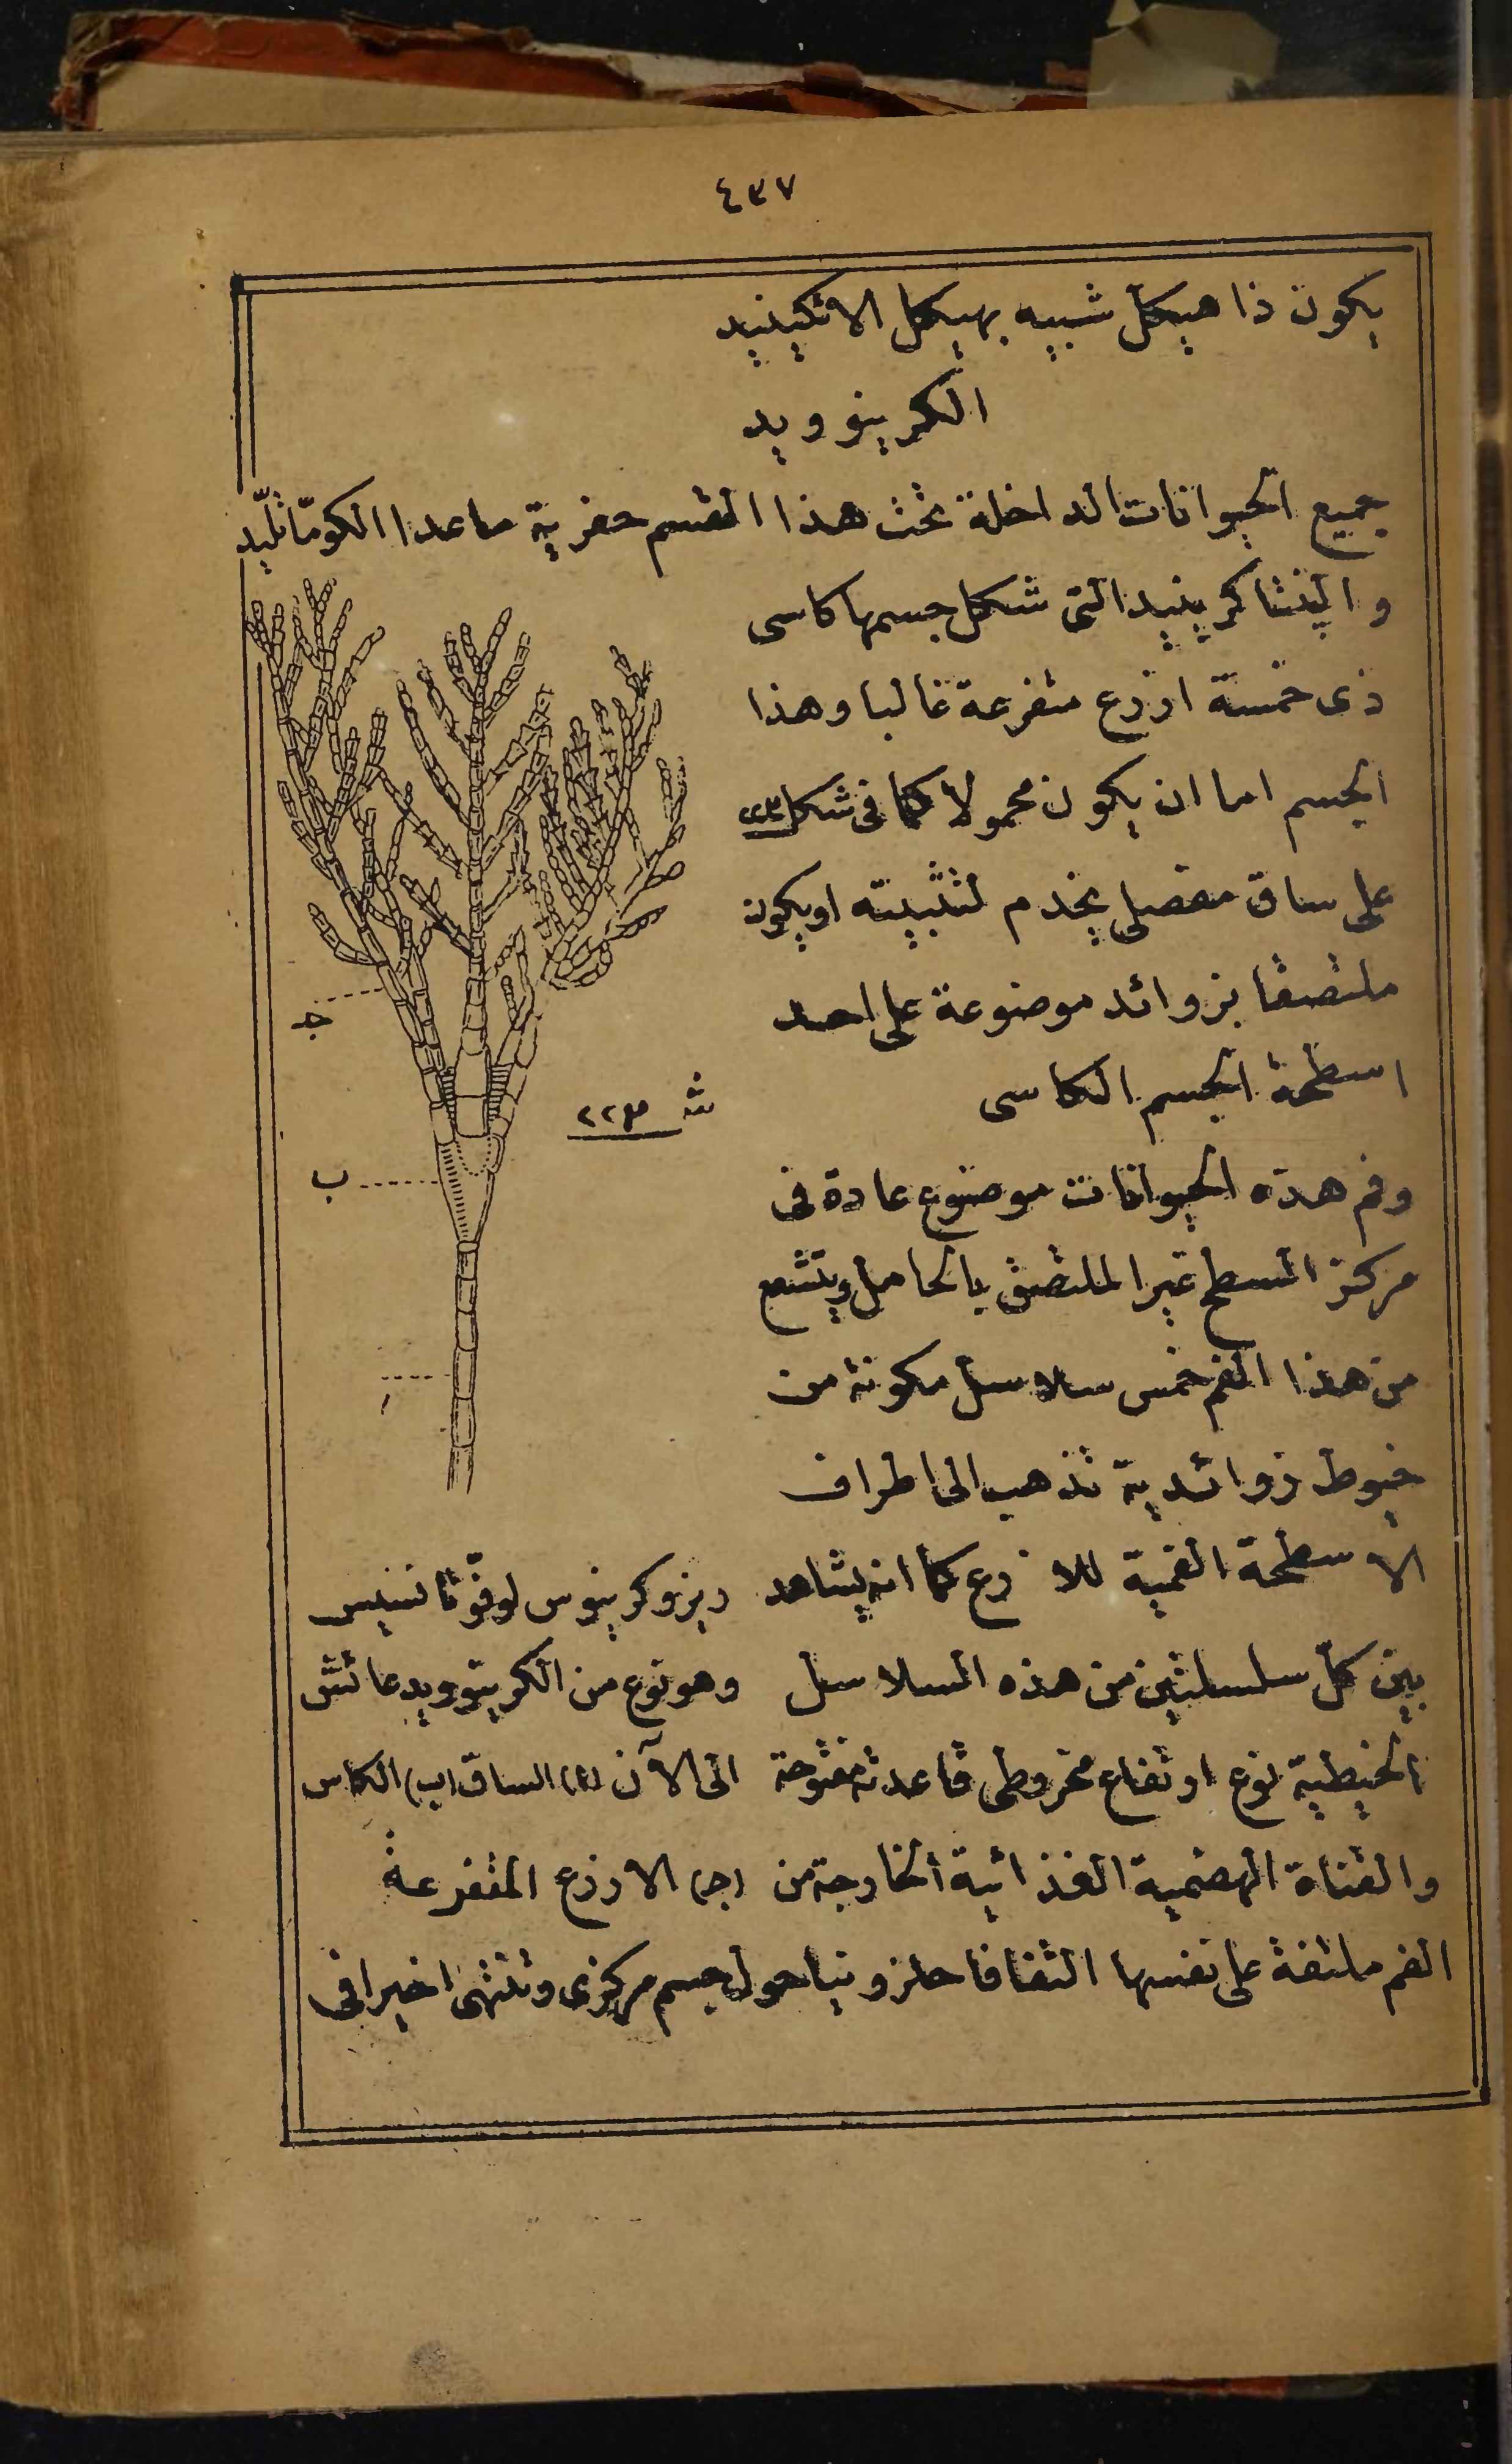 ٤٣٧
يكون ذا هيكل شبيه بهيكل الاتكينيد
الكرينوويد
جميع الحيوانات الداخلة تحت هذا القسم حفرية ماعدا الكوماتليد
والپنتاكرينيد التى شكل جسمها كاسى
ذى خمسة اذرع متفرعة غالبا وهذا
الجسم اما ان يكون محمولا كما فى شكل ٢٢٣
على ساق مفصلى يخدم لتثبيته اويكون
ملتصقا بزوائد موضوعة على احد
اسطحة الجسم الكاسى
وفم هذه الحيوانات موضوع عادة فى
مركز السطح غير الملتصق بالحامل ويتشعع
من هذا الفم خمس سلاسل مكونة من
خيوط زوائدية تذهب الى اطراف
الاسطحة الفمية للاذرع كما انه يشاهد
بين كل سلسلتين من هذه السلاسل
الخيطية نوع ارتفاع مخروطى قاعدته مفتوحة
والقناة الهضمية الغذائية الخارجة من
الفم ملتفة على نفسها التفافا حلزونيا حول جسم مركزى وتنتهى اخيرا فى
جـ
شـ ٢٢٣
ب
ا
ريزوكرينوس لوفوتانسيس
وهو نوع من الكرينوويد عائش
الى الآن (ا) الساق (ب) الكاس
(جـ) الاذرع المتفرعة